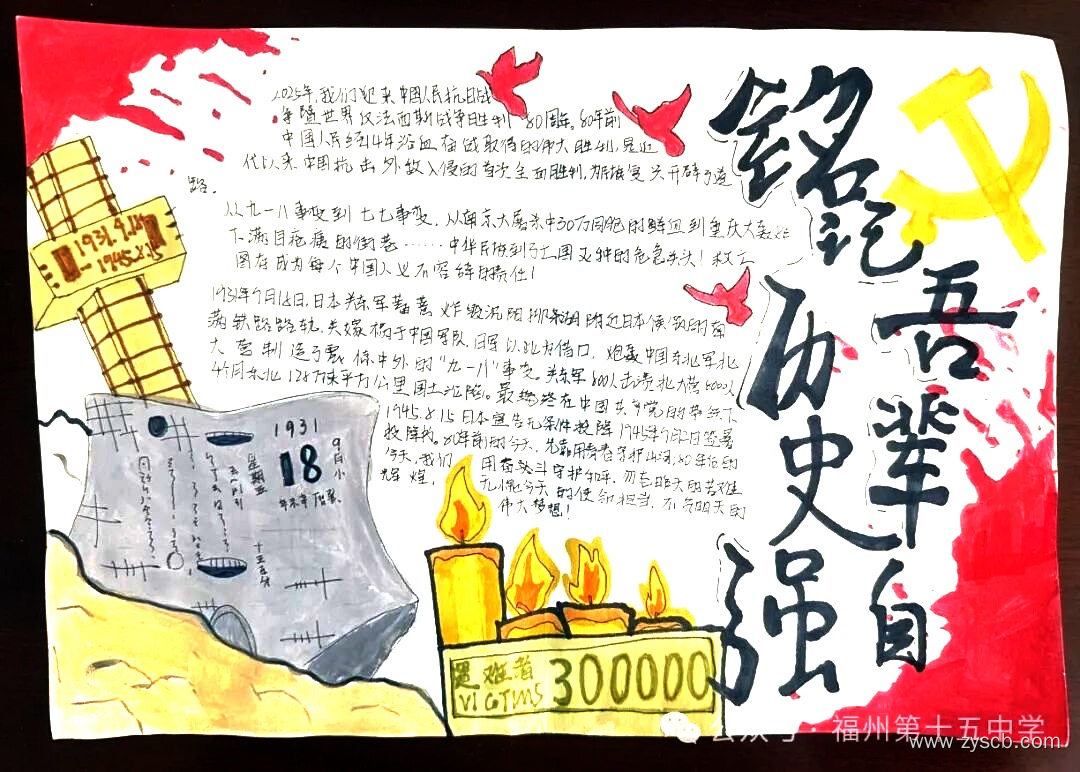 2025年,我们迎来中国人民抗日战
争暨世界反法西斯战争胜利80周年。80年前
中国人民经14年浴血奋战取得的伟大胜利,是近
代以来中国抗击外敌入侵的首次全面胜利,
路。
从九一八事变到七七事变,从南京大屠杀中30万同胞的鲜血到重庆大轰炸
下满目疮痍的街巷……中华民族到了亡国灭种的危急关头!救亡
图存成为每个中国人义不容辞的责任!
1931年9月18日,日本关东军蓄意炸毁沈阳柳条湖附近日本修筑的南
满铁路路轨,并嫁祸于中国军队,日军以此为借口,炮轰中国东北军北
大营制造了震惊中外的“九一八”事变。关东军800人击溃北大营8000人
4个月东北128万平方公里国土沦陷。最终在中国共产党的带领下
1945.8.15日本宣告无条件投降1945年9月2日签署
投降书,80年前的今天,先辈用青春守护山河;80年后的
今天,我们用奋斗守护和平,勿忘昨天的苦难
辉煌,无愧今天的使命担当,不负明天的
伟大梦想!
铭记历史
吾辈自强
1931.9.18
-1945.8.15
1931
9月小
18
星期五
遇难者
VICTIMS
300000
公众号·福州第十五中学
www.zyscb.com